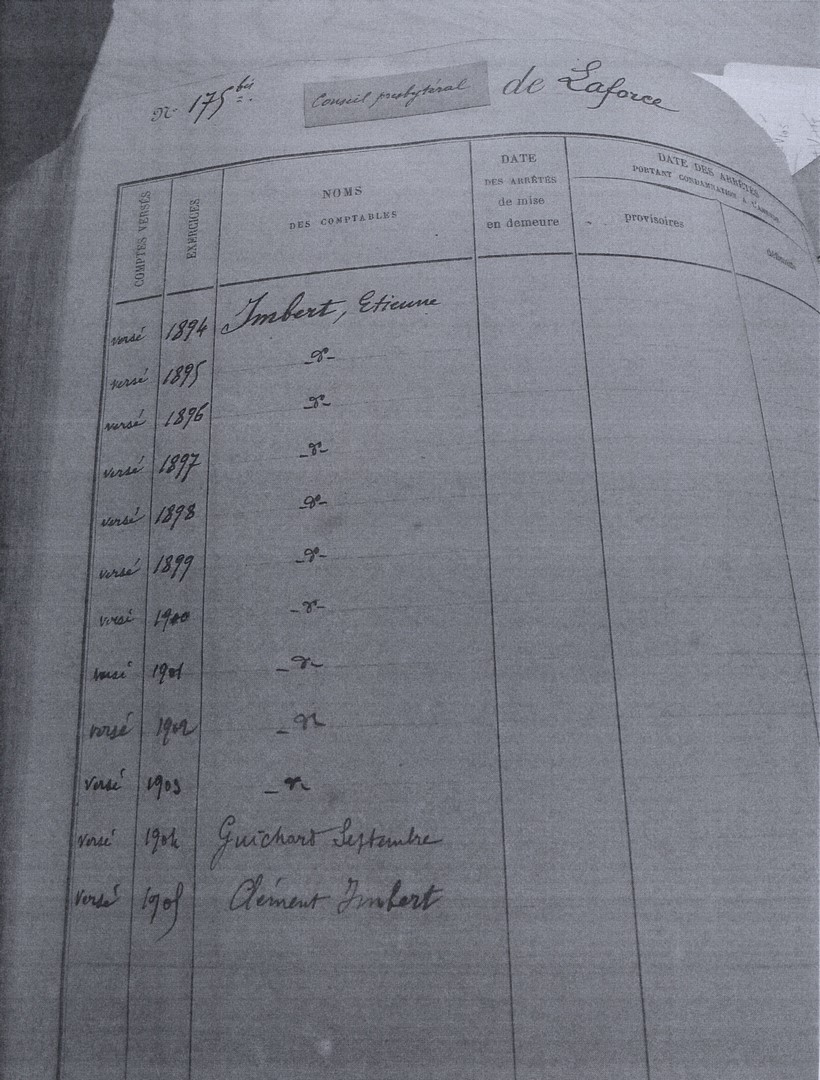 N° 175 bis. Conseil presbytéral de Laforce
COMPTES VERSÉS
EXERCICES
NOMS
DES COMPTABLES
DATE
DES ARRÊTÉS
de mise
en demeure
DATE DES ARRÊTÉS
PORTANT CONDAMNATION A L'AMENDE
provisoires
versé 1894 Imbert, Etienne
versé 1895 -d°-
versé 1896 -d°-
versé 1897 -d°-
versé 1898 -d°-
versé 1899 -d°-
versé 1900 -d°-
versé 1901 -d°-
versé 1902 -d°-
versé 1903 -d°-
versé 1904 Guichard Septembre
versé 1905 Clément Imbert